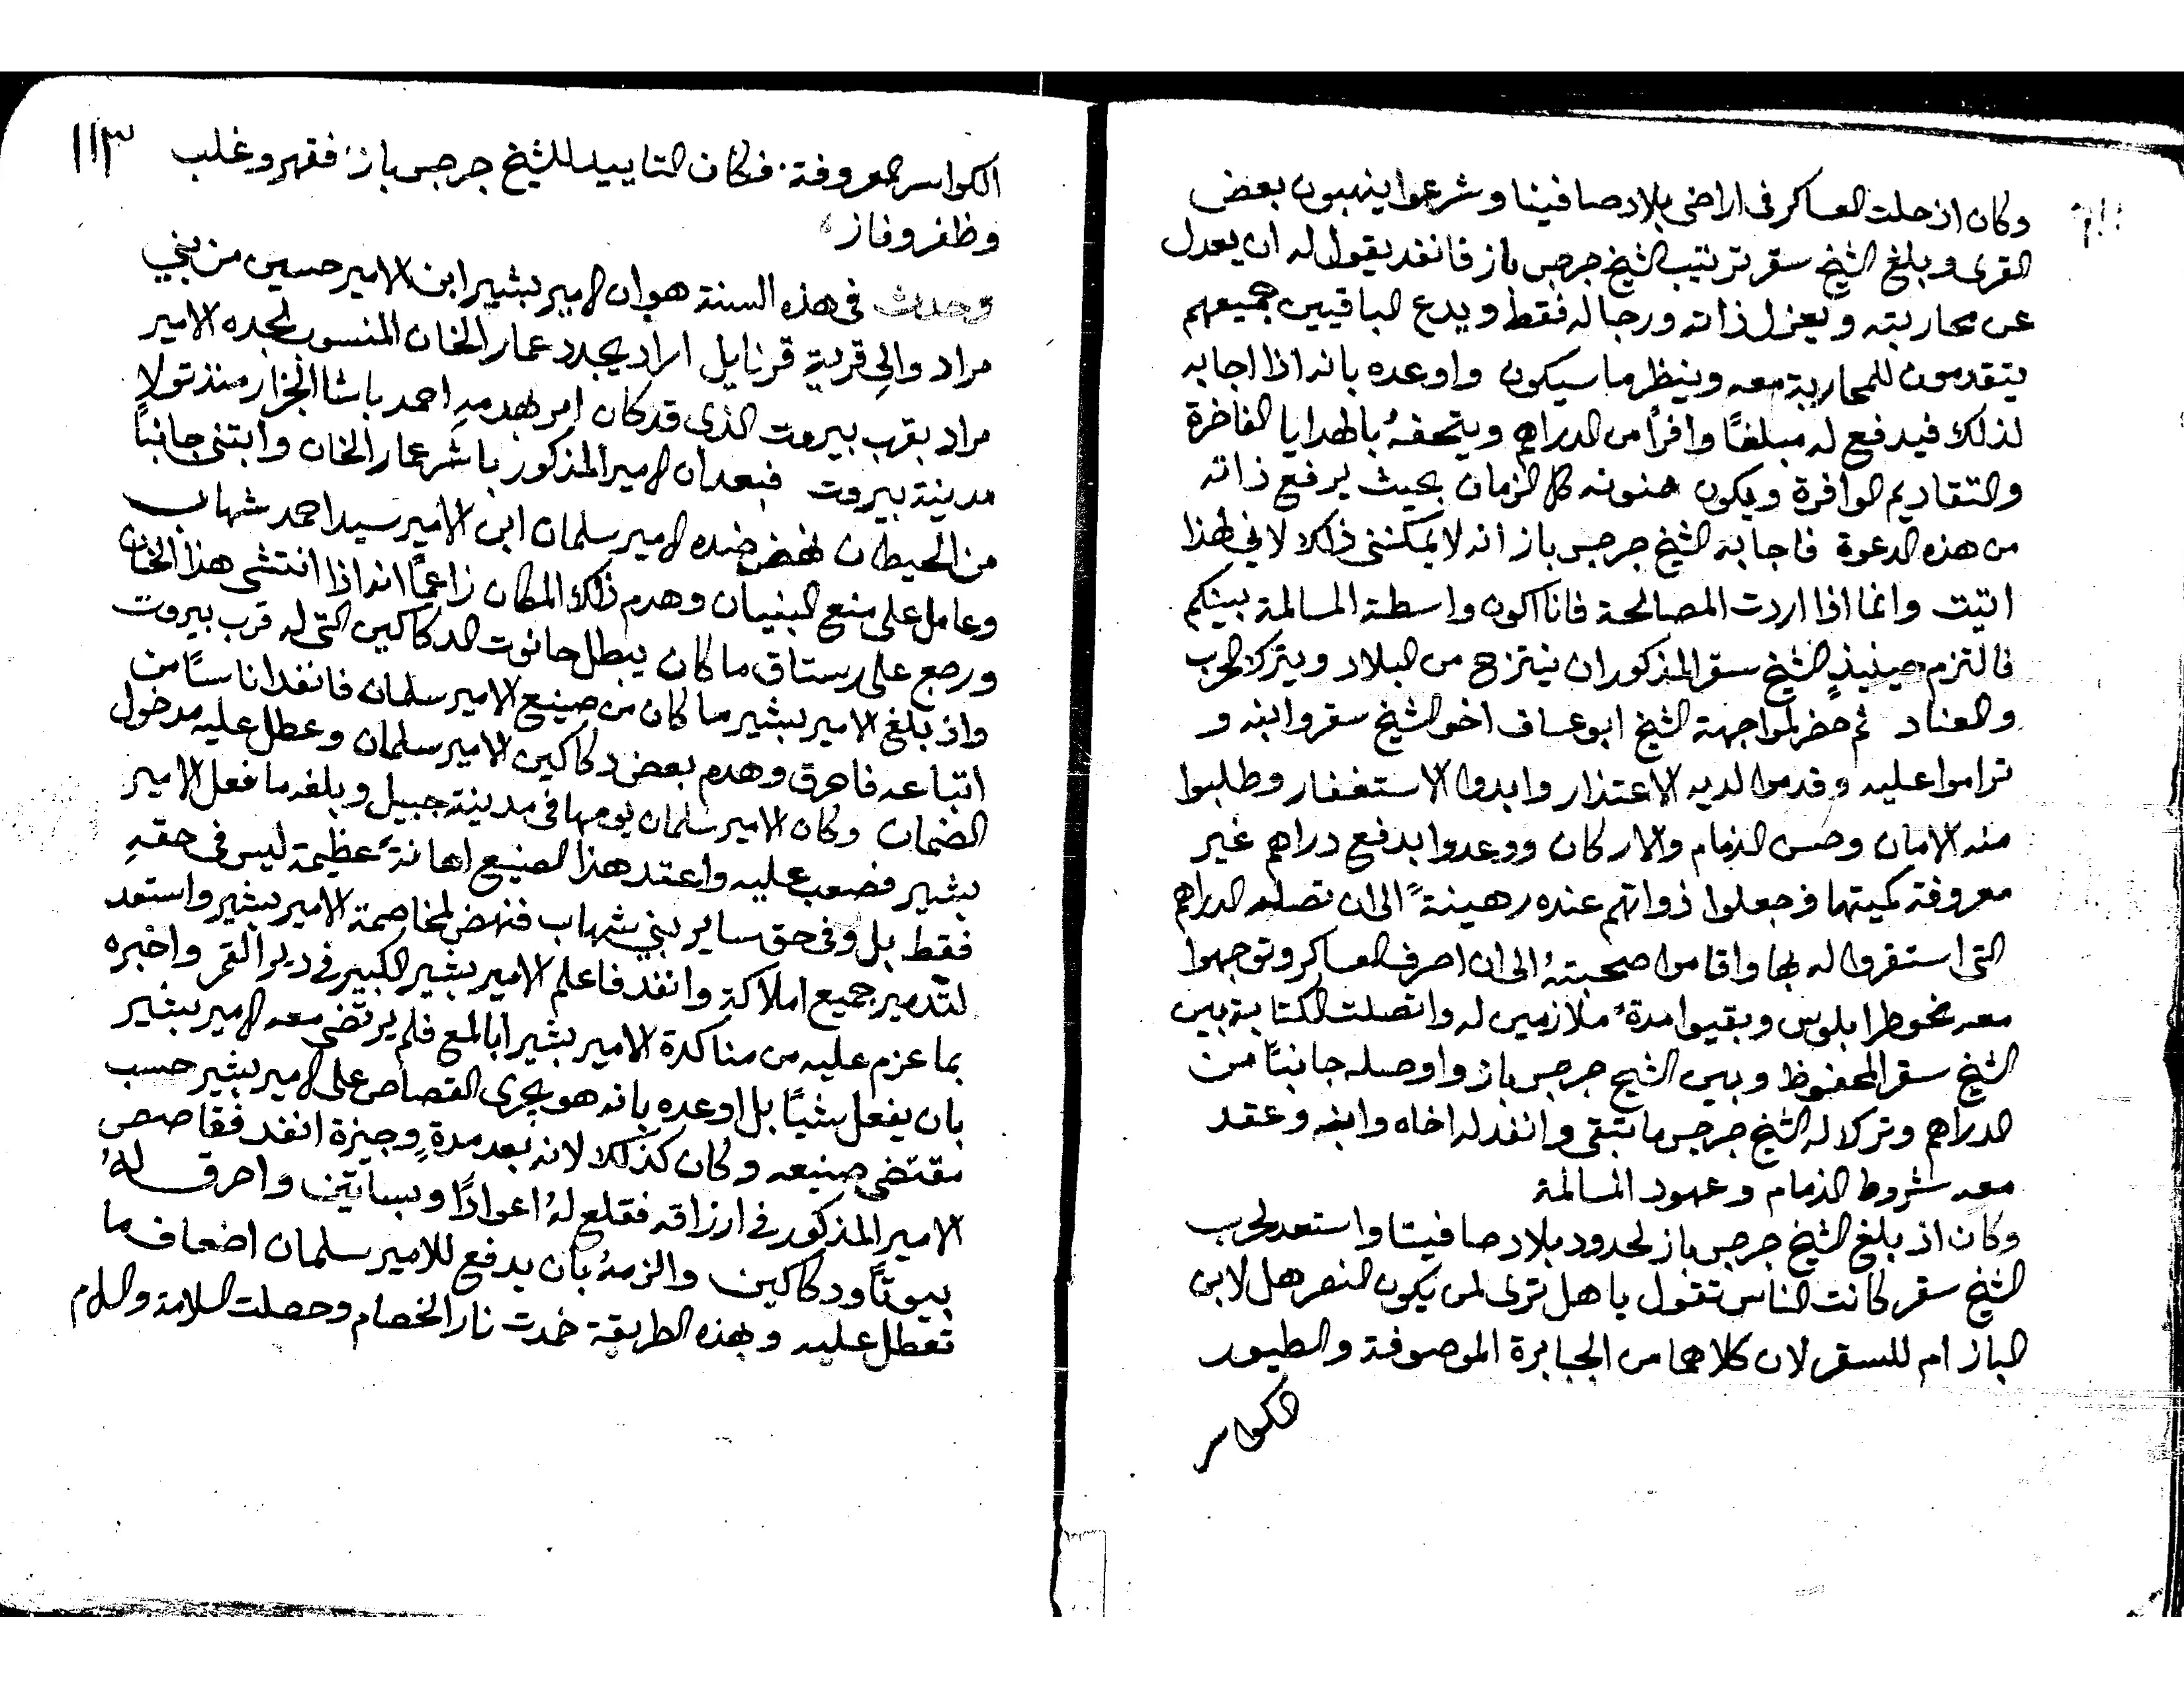 وكان اذ حلت العساكر في اراضي بلاد صافيتا وشرعوا ينهبون بعض
القرى وبلغ الشيخ سقر ترتيب الشيخ جرجس باز فانفد يقول له ان يعدل
عن محاربته ويعزل ذاته ورجاله فقط ويدع الباقيين جميعهم
يتقدمون للمحاربة معه وينظر ما سيكون واوعده بانه اذا اجابه
لذلك فيدفع له مبلغًا وافرًا من الدراهم ويتحفهُ بالهدايا الفاخرة
والتقاديم الوافرة ويكون ممنونه كل الزمان بحيث يرفع ذاته
من هذه الدعوة فاجابه الشيخ جرجس باز انه لا يمكنني ذلك لاني لهذا
اتيت وانما اذا اردت المصالحة فانا اكون واسطة المسالمة بينكم
فالتزم حينيذٍ الشيخ سقر المذكور ان ينتزح من البلاد ويترك الحرب
والعناد ثم حضر لمواجهة الشيخ ابو عساف اخو الشيخ سقر وابنه و
تراموا عليه وقدموا لديه الاعتذار وابدوا الاستغفار وطلبوا
منه الامان وحسن الذمام والاركان ووعدوا بدفع دراهم غير
معروفة كميتها وجعلوا ذواتهم عنده رهينةً الى ان تصله الدراهم
التي استقروا له بها واقاموا صحبتهُ الى ان اصرف العساكر وتوجهوا
معه نحو طرابلوس وبقيوا مدةً ملازمين له واتصلت الكتابة بين
الشيخ سقر المحفوظ وبين الشيخ جرجس باز واوصله جانبًا من
الدراهم وترك له الشيخ جرجس ما تبقى وانفد له اخاه وابنه وعقد
معه شروط الذمام وعهود المسالمة
وكان اذ بلغ الشيخ جرجس باز لحدود بلاد صافيتا واستعد لحرب
الشيخ سقر كانت الناس تقول يا هل ترى لمن يكون النصر هل لابن
الباز ام للسقر لان كلاهما من الجبابرة الموصوفة والطيور
الكواسر
١١٣
الكواسر المعروفة فكان التاييد للشيخ جرجس باز فقهر وغلب
وظفر وفاز
وحدث في هذه السنة هو ان الامير بشير ابن الامير حسين من بني
مراد والي قرية قرنايل اراد يجدد عمار الخان المنسوب لجده الامير
مراد بقرب بيروت الذي قد كان امر بهدمهِ احمد باشا الجزار منذ تولا
مدينة بيروت فبعد ان الامير المذكور باشر عمار الخان وابتنى جانبًا
من الحيطان نهض ضده الامير سلمان ابن الامير سيد احمد شهاب
وعامل على منع البنيان وهدم ذلك المكان زاعمًا انه اذا انتشى هذا الخان
ورجع على رستاق ما كان يبطل حانوت الدكاكين التي له قرب بيروت
واذ بلغ الامير بشير ما كان من صنيع الامير سلمان فانفد اناسًا من
اتباعه فاحرق وهدم بعض دكاكين الامير سلمان وعطل عليه مدخول
الضمان وكان الامير سلمان يومها في مدينة جبيل وبلغه ما فعل الامير
بشير فصعب عليه واعتد هذا الصنيع اهانةً عظيمة ليس في حقهِ
فقط بل وفي حق ساير بني شهاب فنهض لمخاصمة الامير بشير واستعد
لتدمير جميع املاكه وانفد فاعلم الامير بشير الكبير في دير القمر واخبره
بما عزم عليه من مناكدة الامير بشير ابالمع فلم يرتضي معه الامير بشير
بان يفعل شيًا بل اوعده بانه هو يجري القصاص على الامير بشير حسب
مقتضى صنيعه وكان كذلك لانه بعد مدةٍ وجيزة انفد فقاصص
الامير المذكور في ارزاقه فقلع لهُ اعوادًا وبساتين واحرق لهُ
بيوتًا ودكاكين والزمهُ بان يدفع للامير سلمان اضعاف ما
تعطل عليه وبهذه الطريقة خمدت نار الخصام وحصلت السلامة والسلام